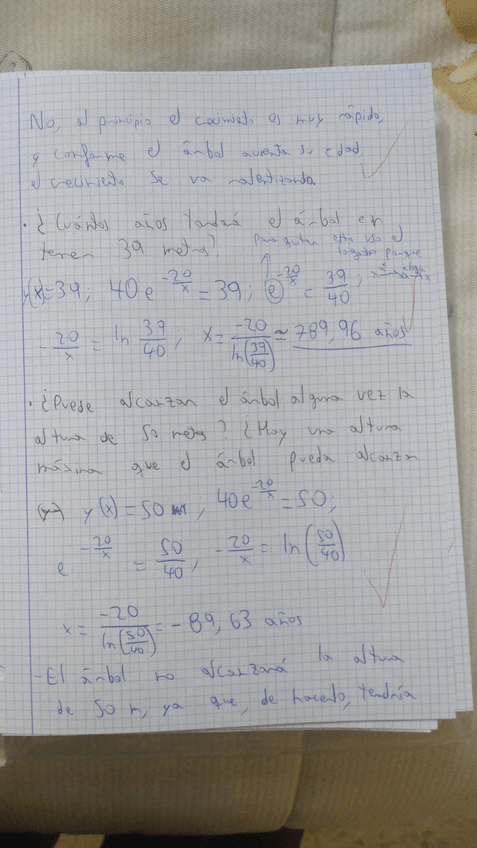 No, al principio el crecimiento es muy rápido,
y conforme el árbol aumenta su edad,
el crecimiento se va ralentizando.
· ¿Cuántos años tardará el árbol en
tener 39 metros?
Para quitar esta uso el
logaritmo porque
y(x)=39; 40e^(-20/x) = 39; e^(-20/x) = 39/40;
-20/x = ln 39/40; x = -20/ln(39/40) ≃ 789,96 años
· ¿Puede alcanzar el árbol alguna vez la
altura de 50 metros? ¿Hay una altura
máxima que el árbol pueda alcanzar
y(x) = 50 m; 40e^(-20/x) = 50;
e^(-20/x) = 50/40; -20/x = ln(50/40)
x = -20/ln(50/40) = -89,63 años
- El árbol no alcanzará la altura
de 50 m, ya que, de hacerlo, tendría